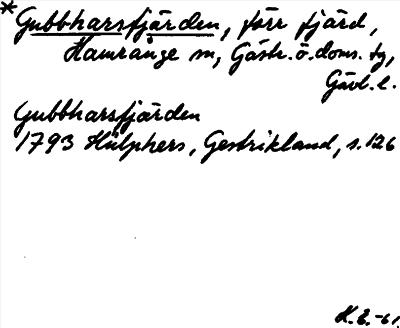 *Gubbharsfjärden, förr fjärd,
Hamrånge sn, Gästr. ö. doms. tg,
Gävl. l.
Gubbharsfjärden
1793 Hülphers, Gestrikland, s. 126
H.E.-61.